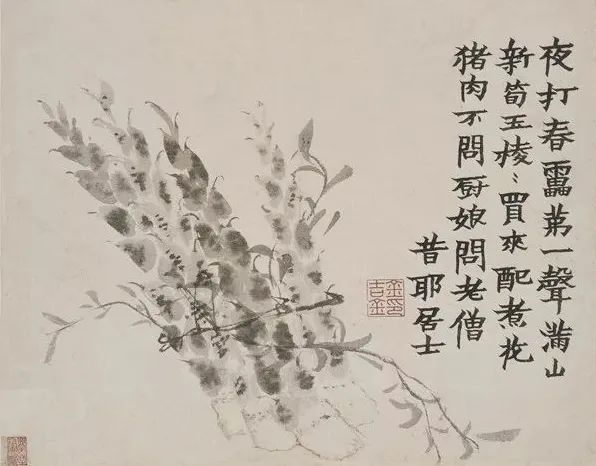 夜打春靁第一聲滿山
新筍玉棱〻買來配煮花
猪肉不問厨娘問老僧
昔耶居士
金吉金印